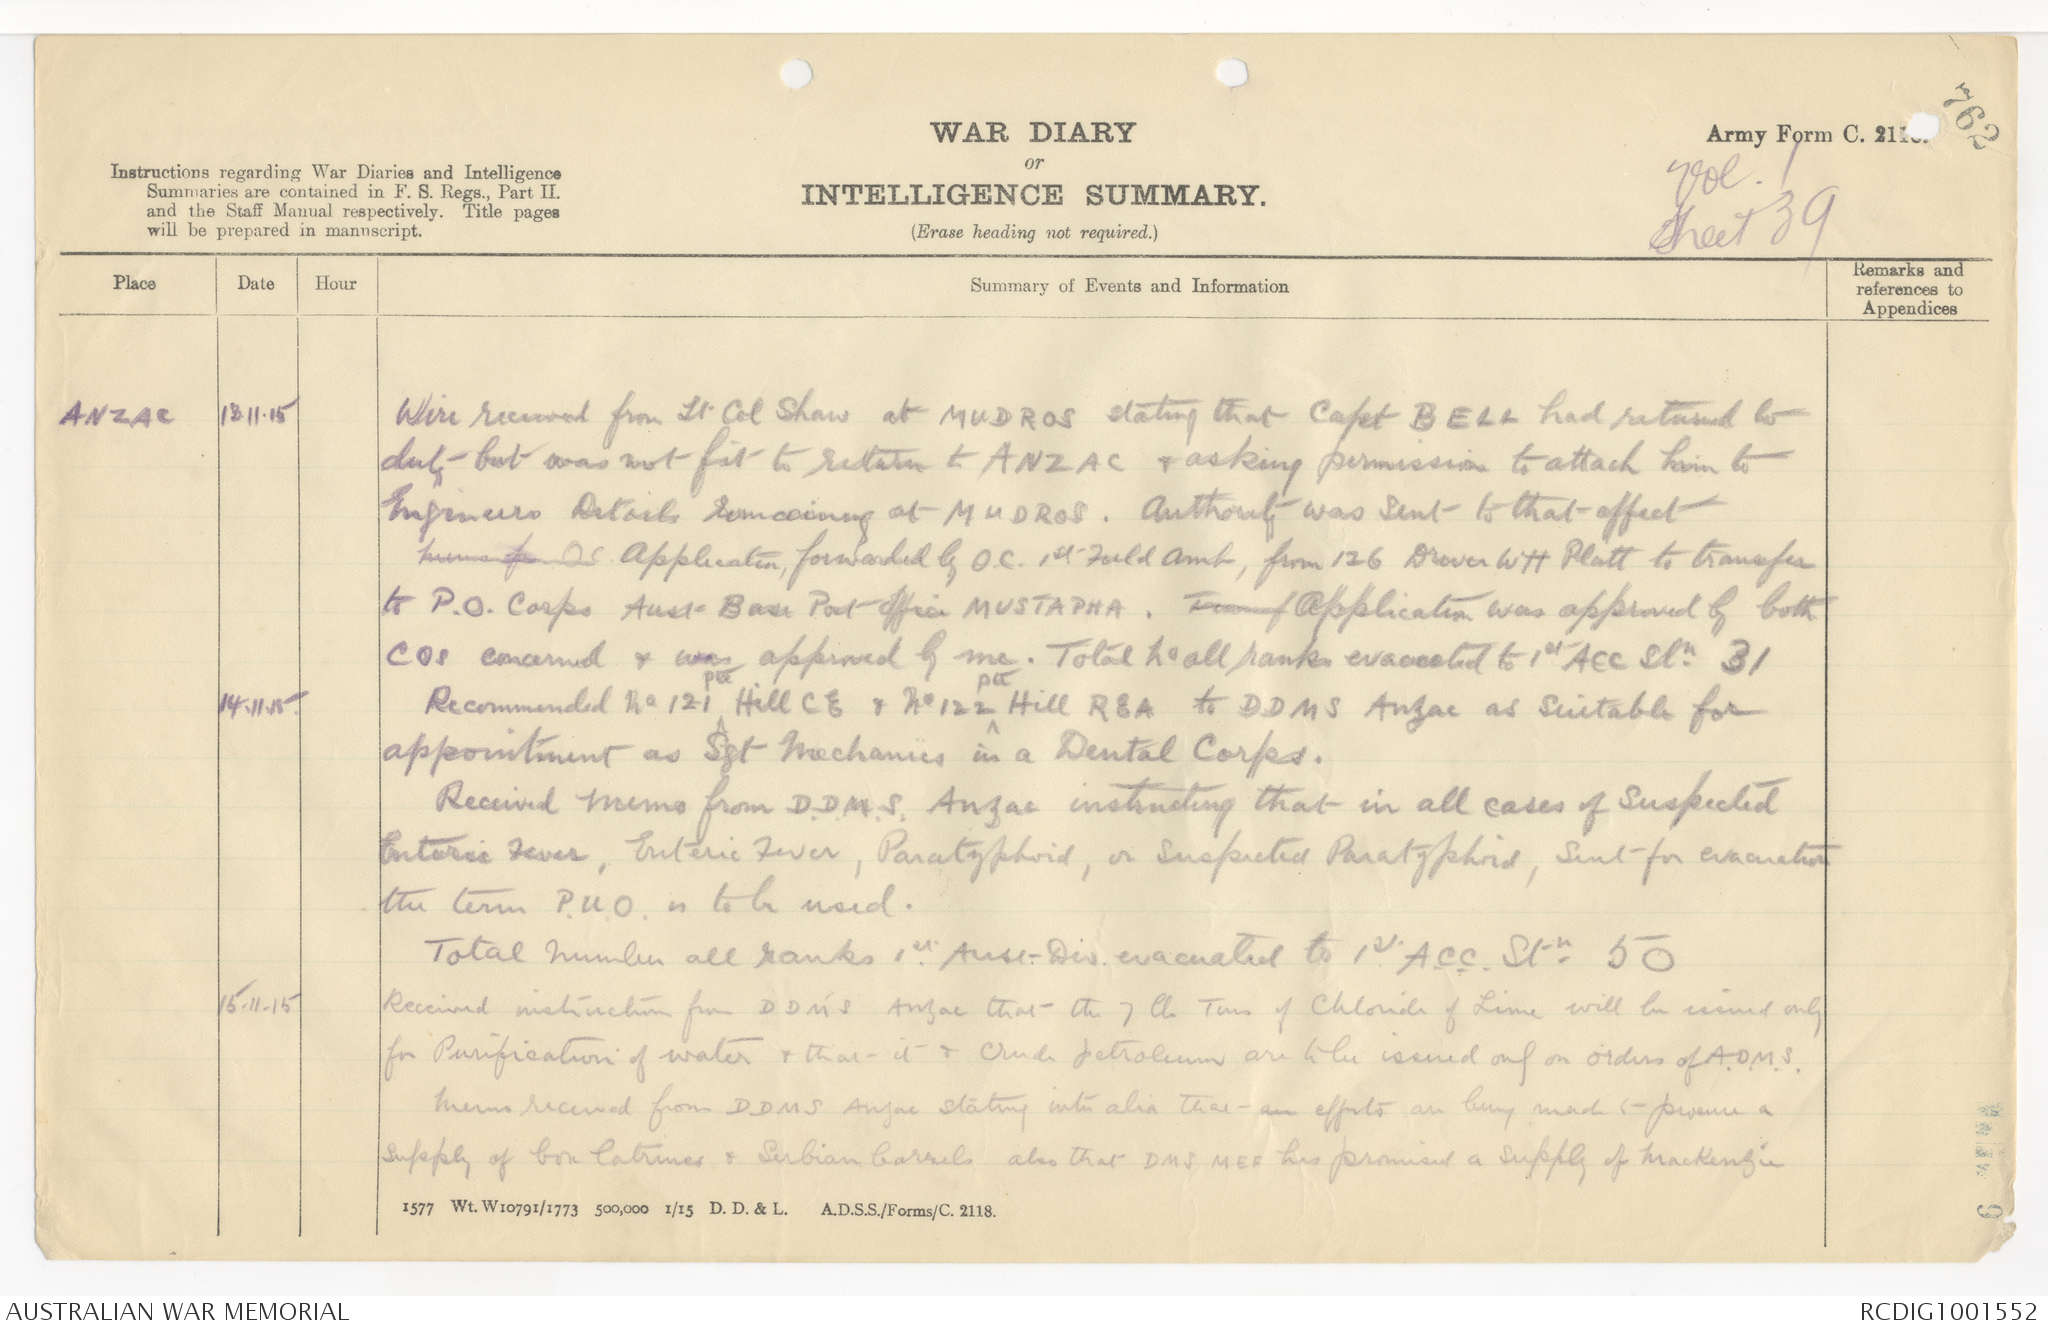 762
WAR DIARY
or
INTELLIGENCE SUMMARY.
(Erase heading not required.)
Army Form C. 2118.
Vol. 1
Sheet 39
Instructions regarding War Diaries and Intelligence
Summaries are contained in F. S. Regs., Part II.
and the Staff Manual respectively. Title pages
will be prepared in manuscript.
Place Date Hour Summary of Events and Information Remarks and references to Appendices
ANZAC 13.11.15 Wire received from Lt Col Shaw at MUDROS stating that Capt BELL had returned to
duty but was not fit to return to ANZAC & asking permission to attach him to
Engineers Details remaining at MUDROS. Authority was sent to that effect
OC Application, forwarded by O.C. 1st Field Amb, from 126 Driver WH Platt to transfer
to P.O. Corps Aust Base Post office MUSTAPHA. Application was approved by both
COs concerned & was approved by me. Total No all ranks evacuated to 1st ACC Stn 31
14.11.15 Recommended No 121 Pte Hill CE & No 122 Pte Hill REA to DDMS Anzac as suitable for
appointment as Sgt Mechanics in a Dental Corps.
Received memo from D.D.M.S. Anzac instructing that in all cases of suspected
Enteric Fever, Enteric Fever, Paratyphoid, or suspected Paratyphoid, sent for evacuation
the term P.U.O. is to be used.
Total number all ranks 1st Aust Div. evacuated to 1st A.C.C. Stn. 50
15.11.15 Received instruction from DDMS Anzac that the 7 Tins of Chloride of Lime will be issued only
for Purification of water & that it & crude petroleum are to be issued only on orders of A.D.M.S.
Memo received from DDMS Anzac stating inter alia that efforts are being made to procure a
supply of box latrines & Serbian barrels also that DMS MEF has promised a supply of Mackenzie
1577 Wt. W10791/1773 500,000 1/15 D. D. & L. A.D.S.S./Forms/C. 2118.
AUSTRALIAN WAR MEMORIAL
RCDIG1001552